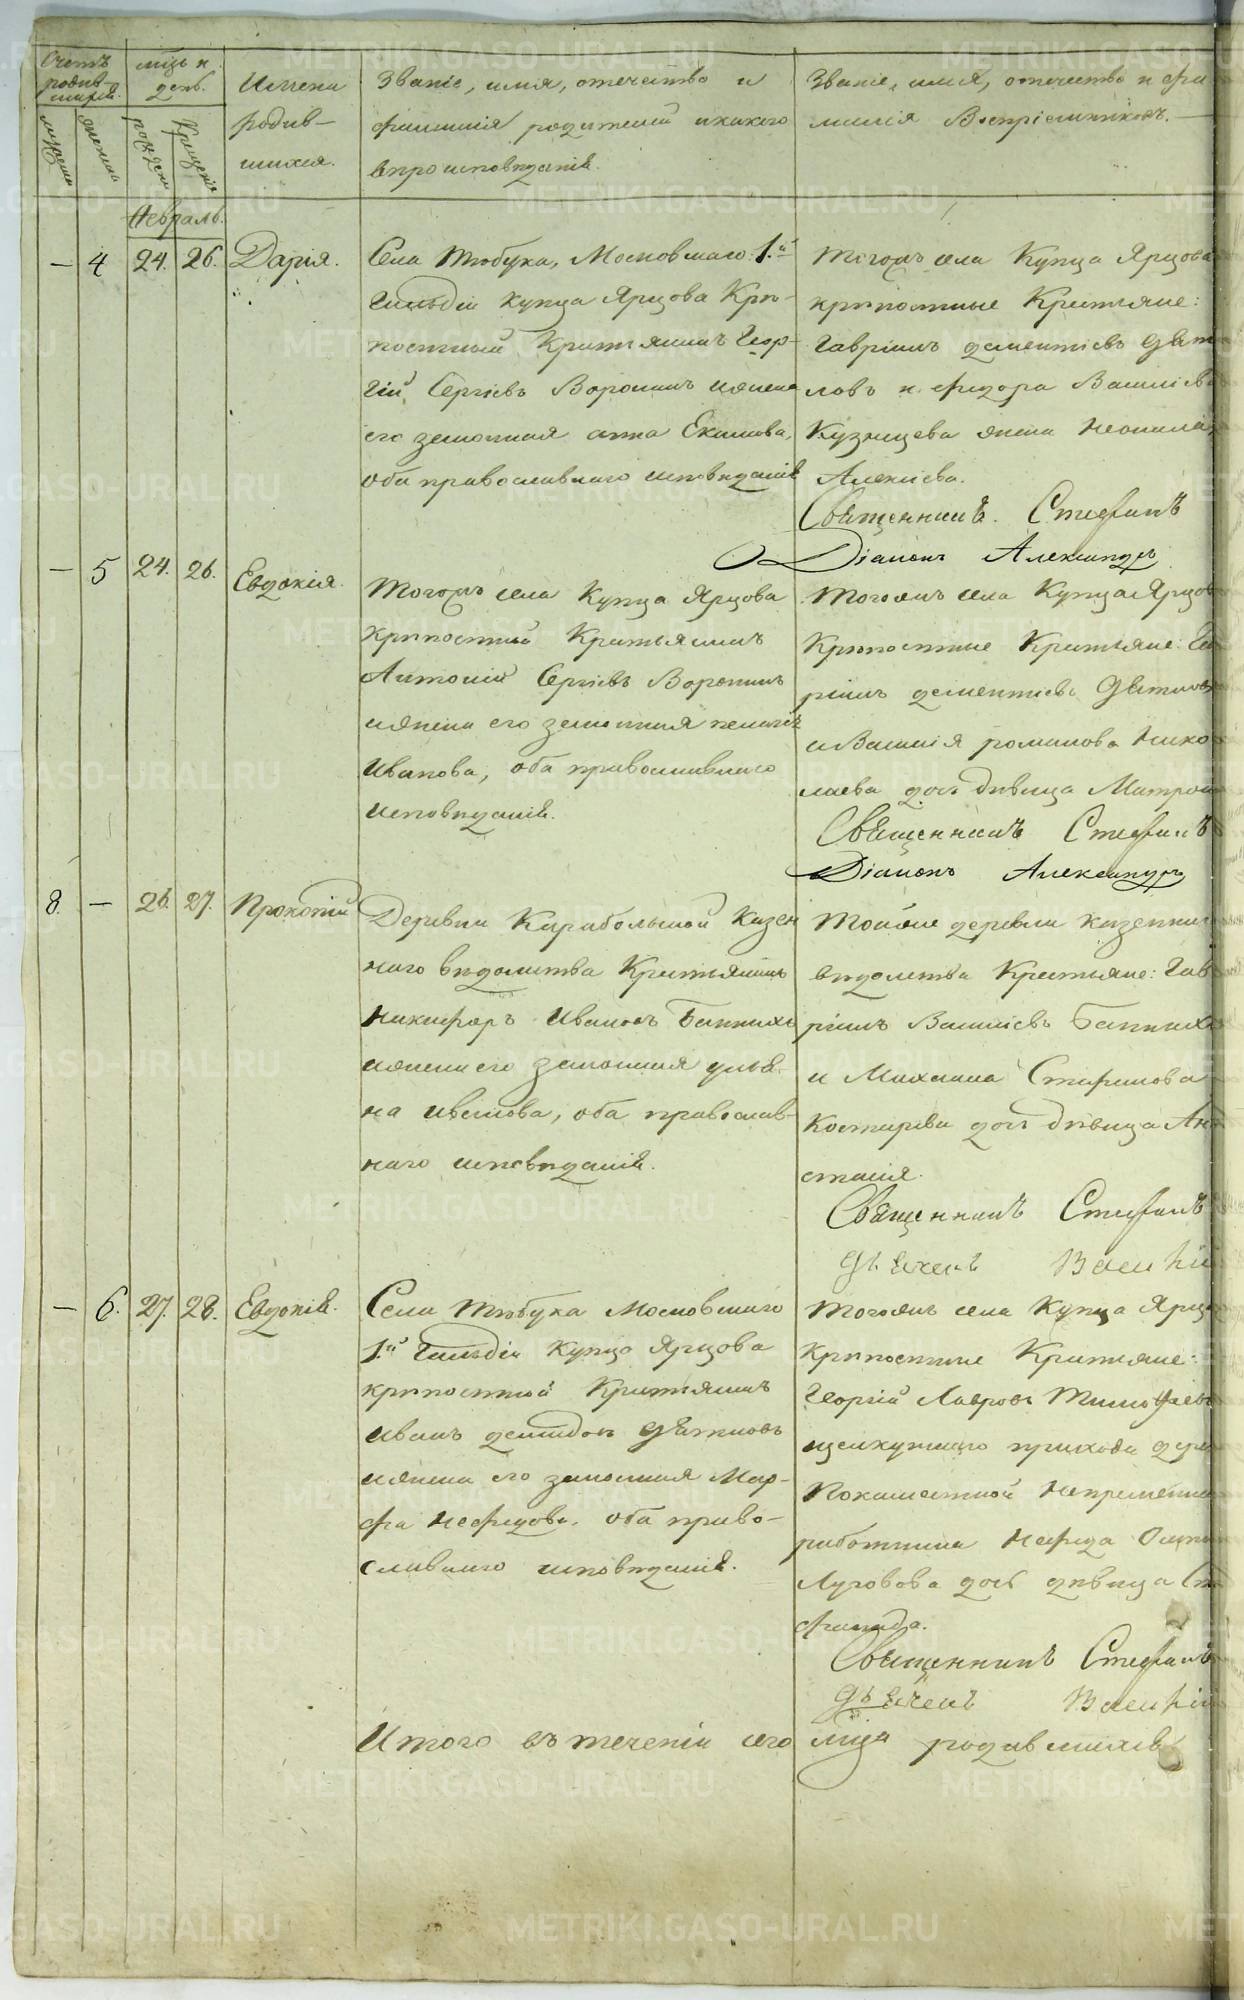 Счетъ родив-шихся.
мужеска
женска
мцъ и день.
рожденія
Крещенія
Имена родив-шихся.
Званіе, имя, отечество и
фамилія родителей икакого
вѣроисповѣданія.
Званіе, имя, отечество и фа
милія Воспріемниковъ.
Февраль.
— 4 24. 26. Дарія.
Села Тюбука, Московскаго 1.й
гильдіи купца Ярцова Крѣ-
постный Крестьянинъ Геор-
гій Сергѣевъ Воронинъ ижена
его законная анна Екимова,
оба православнаго исповѣданія
Тогожъ села Купца Ярцова
крѣпостные Крестьяне:
Гавріилъ дементіевъ Дят
ловъ и федора Василіева
Кузнецова жена Неонила
Алексіева.
Священникъ. Стефанъ
Діаконъ Александръ
— 5 24. 26. Евдокія.
Тогожъ села Купца Ярцова
крѣпостной Крестьянинъ
Антоній Сергіевъ Воронинъ
ижена его законная пелагея
Иванова, оба православнаго
исповѣданія.
Тогожъ села Купца Ярцов
Крѣпостные Крестьяне: Гав
ріилъ дементіевъ Дятлов
иВасилія романова Нико
лаева дочь дѣвица Матрон
Священникъ Стефанъ
Діаконъ Александръ
8. — 26. 27. Прокопій
Деревни Карабольской Казен
наго вѣдомства Крестьянинъ
Никифоръ Ивановъ Банныхъ
ижена его законная улья-
на иванова, оба православ-
наго исповѣданія.
Тойже деревни казеннаг
вѣдомства Крестьяне: Гав
ріилъ Василіевъ Банных
и Михаила Стафиова
Костарева дочь дѣвица Ан
стасія.
Священникъ Стефанъ
Дьячекъ Василій
— 6. 27. 28. Евдокія.
Села Тюбука Московскаго
1.й Гильдіи Купца Ярцова
крѣпостной Крестьянинъ
иванъ демидовъ Дятловъ
ижена его законная Мар-
фа Нефедова. оба право-
славнаго исповѣданія.
Тогожъ села Купца Ярц
крѣпостные Крестьяне:
Георгій Лавровъ Тимофеевъ
ицескускаго прихода дере
непремѣнна
работника Нефеда
Луговова дочь дѣвица Ст
фанида.
Священникъ Стефанъ
Дьячекъ Василій
Итого въ теченіи сего мца родившихся
METRIKI.GASO-URAL.RU